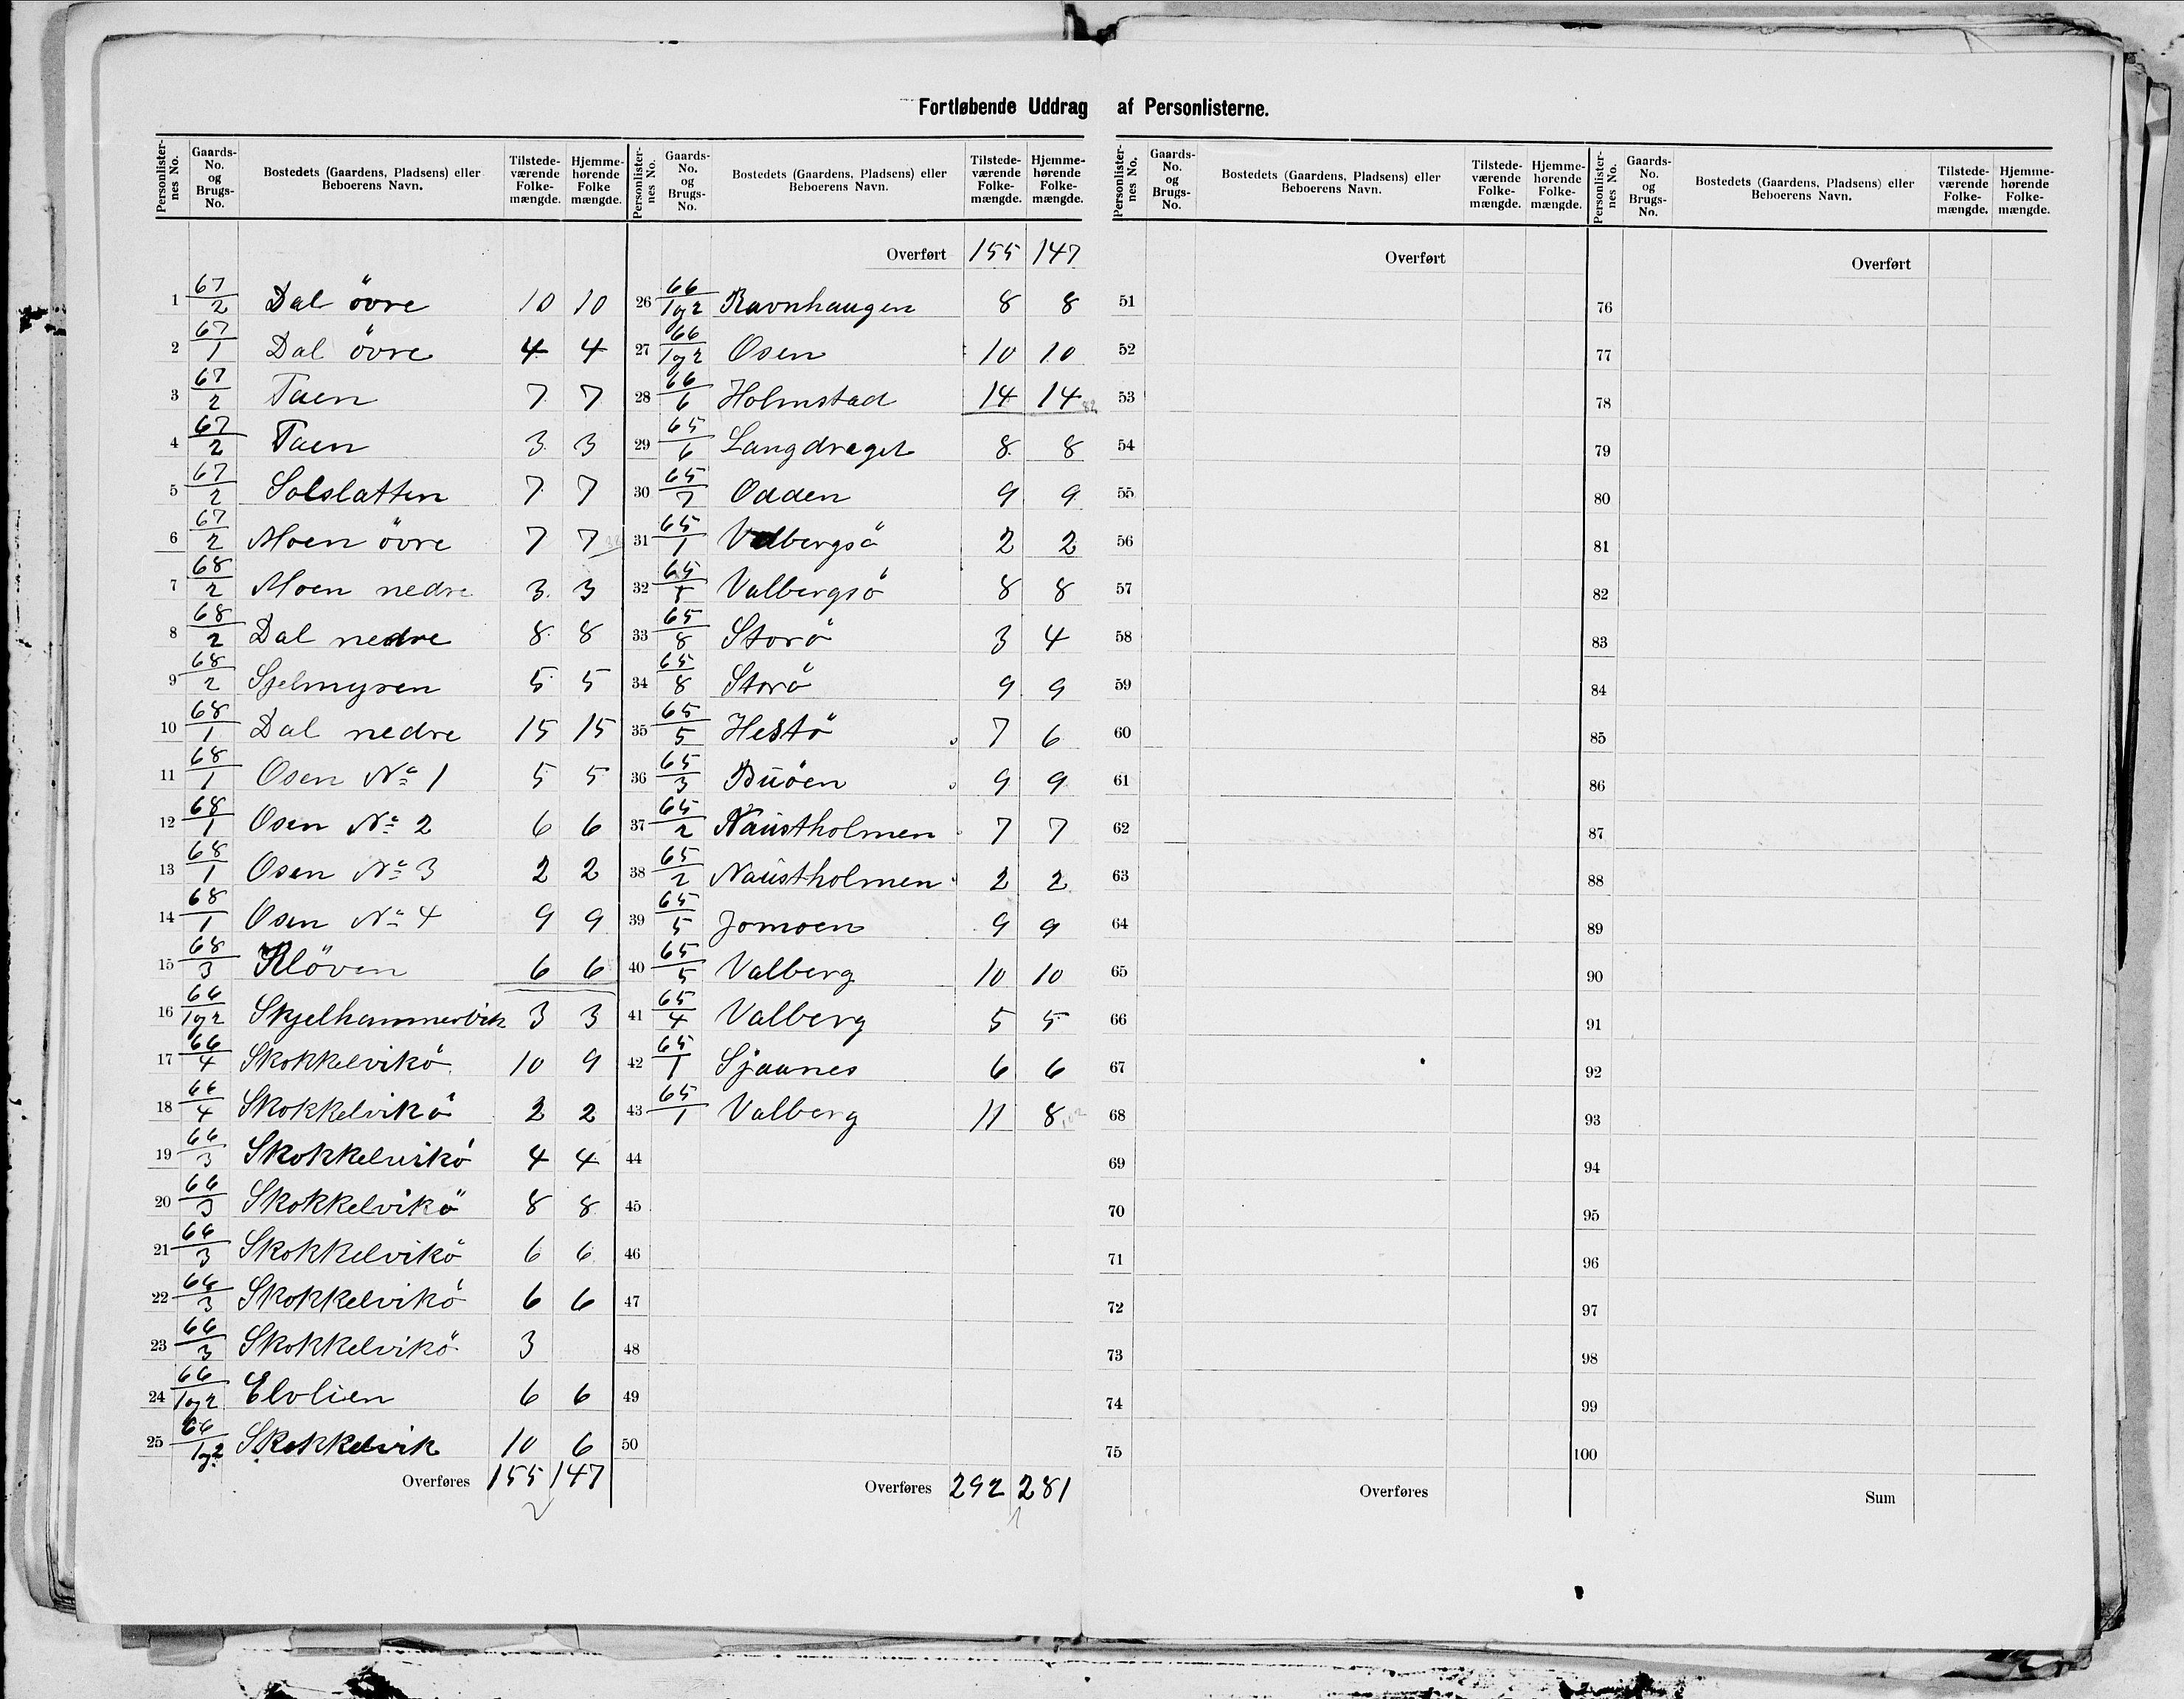 Fortløbende Uddrag af Personlisterne.
Personlisternes No. Gaards-No. og Brugs-No. Bostedets (Gaardens, Pladsens) eller Beboerens Navn. Tilstedeværende Folkemængde. Hjemmehørende Folkemængde.
1 67/2 Dal övre 10 10
2 67/1 Dal övre 4 4
3 67/2 Taen 7 7
4 67/2 Taen 3 3
5 67/2 Solslatten 7 7
6 67/2 Moen övre 7 7
7 68/2 Moen nedre 3 3
8 68/2 Dal nedre 8 8
9 68/2 Sjelmyren 5 5
10 68/1 Dal nedre 15 15
11 68/1 Osen No 1 5 5
12 68/1 Osen No 2 6 6
13 68/1 Osen No 3 2 2
14 68/1 Osen No 4 9 9
15 68/3 Klöven 6 6
16 66/1og2 Skjelhammervik 3 3
17 66/4 Skokkelvikö 10 9
18 66/4 Skokkelvikö 2 2
19 66/3 Skokkelvikö 4 4
20 66/3 Skokkelvikö 8 8
21 66/3 Skokkelvikö 6 6
22 66/3 Skokkelvikö 6 6
23 66/3 Skokkelvikö 3
24 66/1og2 Elvlien 6 6
25 66/1og2 Skokkelvik 10 6
Overføres 155 147
Personlisternes No. Gaards-No. og Brugs-No. Bostedets (Gaardens, Pladsens) eller Beboerens Navn. Tilstedeværende Folkemængde. Hjemmehørende Folkemængde.
Overført 155 147
26 66/1og2 Ravnhaugen 8 8
27 66/1og2 Osen 10 10
28 66/6 Holmstad 14 14
29 65/6 Langdraget 8 8
30 65/7 Odden 9 9
31 65/1 Valbergsö 2 2
32 65/1 Valbergsö 8 8
33 65/8 Storö 3 4
34 65/8 Storö 9 9
35 65/5 Hestö 7 6
36 65/3 Buöen 9 9
37 65/2 Naustholmen 7 7
38 65/2 Naustholmen 2 2
39 65/5 Jomoen 9 9
40 65/5 Valberg 10 10
41 65/4 Valberg 5 5
42 65/1 Sjaanes 6 6
43 65/1 Valberg 11 8
44
45
46
47
48
49
50
Overføres 292 281
Personlisternes No. Gaards-No. og Brugs-No. Bostedets (Gaardens, Pladsens) eller Beboerens Navn. Tilstedeværende Folkemængde. Hjemmehørende Folkemængde.
Overført
51
52
53
54
55
56
57
58
59
60
61
62
63
64
65
66
67
68
69
70
71
72
73
74
75
Overføres
Personlisternes No. Gaards-No. og Brugs-No. Bostedets (Gaardens, Pladsens) eller Beboerens Navn. Tilstedeværende Folkemængde. Hjemmehørende Folkemængde.
Overført
76
77
78
79
80
81
82
83
84
85
86
87
88
89
90
91
92
93
94
95
96
97
98
99
100
Sum